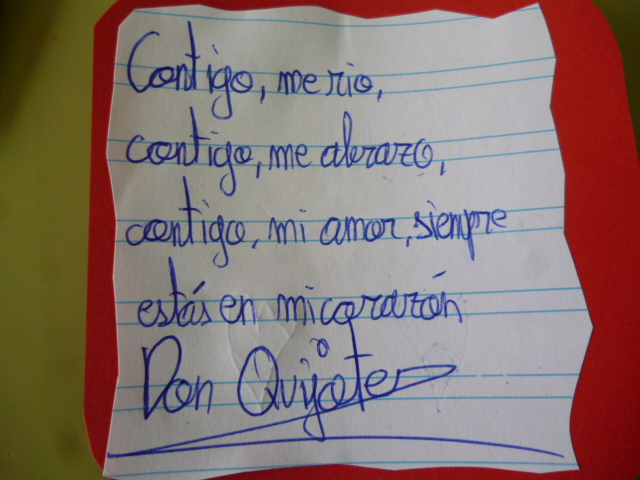 Contigo, me rio,
contigo, me abrazo,
contigo, mi amor, siempre
estás en mi corazón
Don Quijote